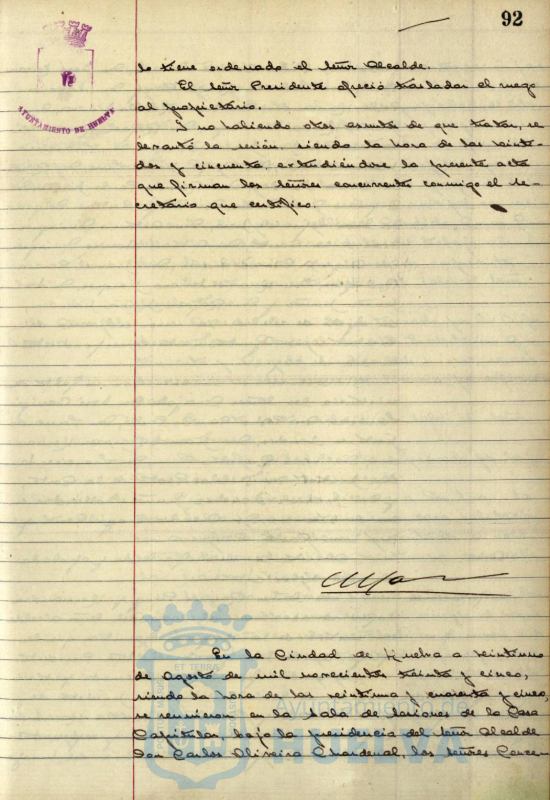 92
AYUNTAMIENTO DE HUELVA
lo tiene ordenado el Señor Alcalde.
El Señor Presidente ofreció trasladar el ruego
al propietario.
Y no habiendo otros asuntos de que tratar, se
levantó la sesión, siendo la hora de las veinti-
dos y cincuenta, extendiéndose la presente acta
que firman los Señores concurrentes conmigo el Se-
cretario que certifico.
En la Ciudad de Huelva a veintiuno
de Agosto de mil novecientos treinta y cinco,
siendo la hora de las veintiuna y cuarenta y cinco,
se reunieron en la Sala de Sesiones de la Casa
Capitular, bajo la presidencia del Señor Alcalde
Don Carlos Oliveira Chardenal, los Señores Conce-
ET TERRÆ
Ayuntamiento de
HUELVA